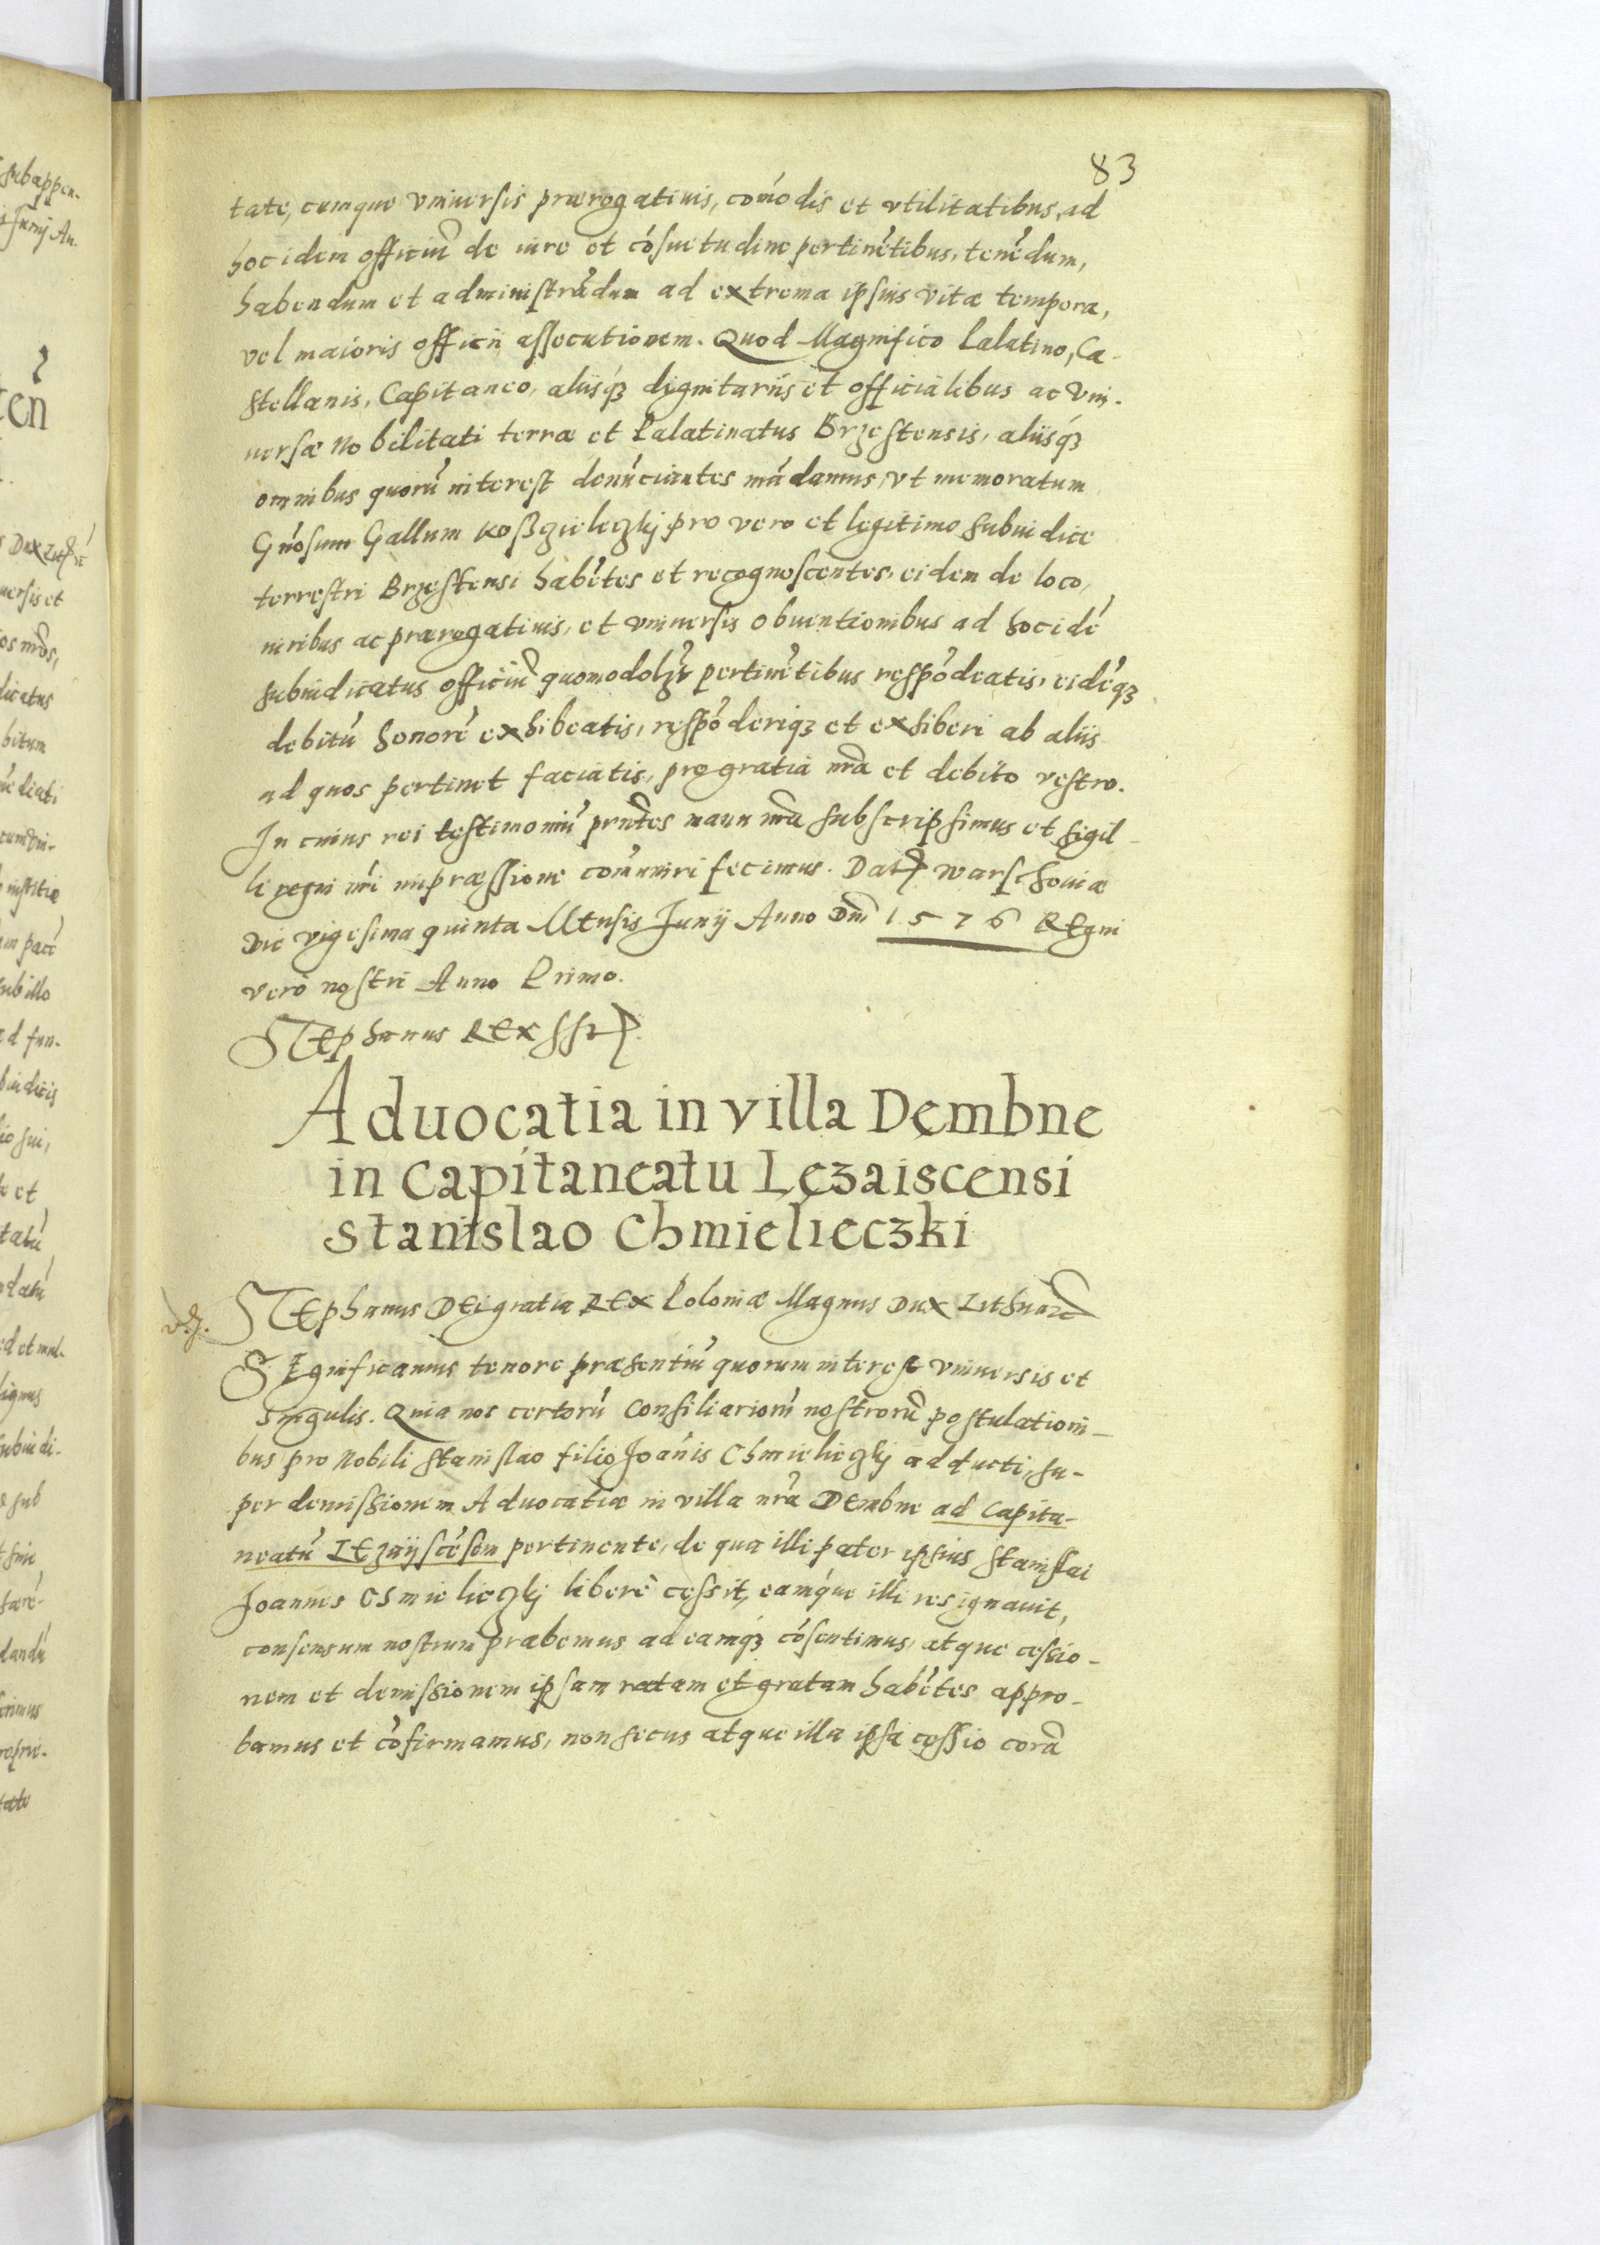 83
tate, cumque vniuersis prærogatiuis, com̃odis et vtilitatibus, ad
hoc idem officiũ de iure et cõsuetudine pertinẽtibus, tenẽdum,
habendum et administrãdum ad extrema ipsius vitæ tempora,
vel maioris officii assecutionem. Quod Magnifico Palatino, Ca-
stellanis, Capitaneo, aliisq́ꝫ dignitariis et officialibus ac vni-
uersæ Nobilitati terræ et Palatinatus Brzestensis, aliisq́ꝫ
omnibus quorũ interest denũciantes mãdamus, vt memoratum
Gñosum Gallum Koßczieleczkj pro vero et legitimo Subiudice
terrestri Brzestensi habẽtes et recognoscentes, eidem de loco,
iuribus ac prærogatiuis, et vniuersis obuentionibus ad hoc idẽ
subiudicatus officiũ quomodolꝫt pertinẽtibus respõdeatis, eidẽqꝫ
debitũ honorẽ exhibeatis, respõderiqꝫ et exhiberi ab aliis
ad quos pertinet faciatis, pro gratia nr̃a et debito vestro.
In cuius rei testimoniũ prñtes manu nr̃a subscripsimus et Sigil-
li regni nr̃i impræssione com̃uniri fecimus. Datꝭ Warschouiæ
Die vigesima quinta Mensis Junij Anno Dñi 1576 Regni
vero nostri Anno Primo.
Stephanus Rex sstꝭ
Aduocatia in villa Dembne
in Capitaneatu Lezaiscensi
Stanislao Chmielieczki
Stephanus Dei gratia Rex Poloniæ Magnus Dux Lithuaniæ
Significamus tenore præsentiũ quorum interest vniuersis et
singulis. Quia nos certorũ Consiliariorũ nostrorũ postulationi-
bus pro Nobili Stanislao filio Joañis Chmielieczkj adducti, su-
per demissionem Aduocatiæ in villa nr̃a Dembne ad Capita-
neatũ Lezaijscẽsem pertinente, de qua illi pater ipsius Stanislai
Joannes Chmielieczkj liberè cessit, eamq́ue illi resignauit,
consensum nostrum præbemus ad eamq́ꝫ cõsentimus, atque cessio-
nem et demissionem ipsam ratam et gratam habẽtes appro-
bamus et cõfirmamus, non secus atque illa ipsa cessio corã